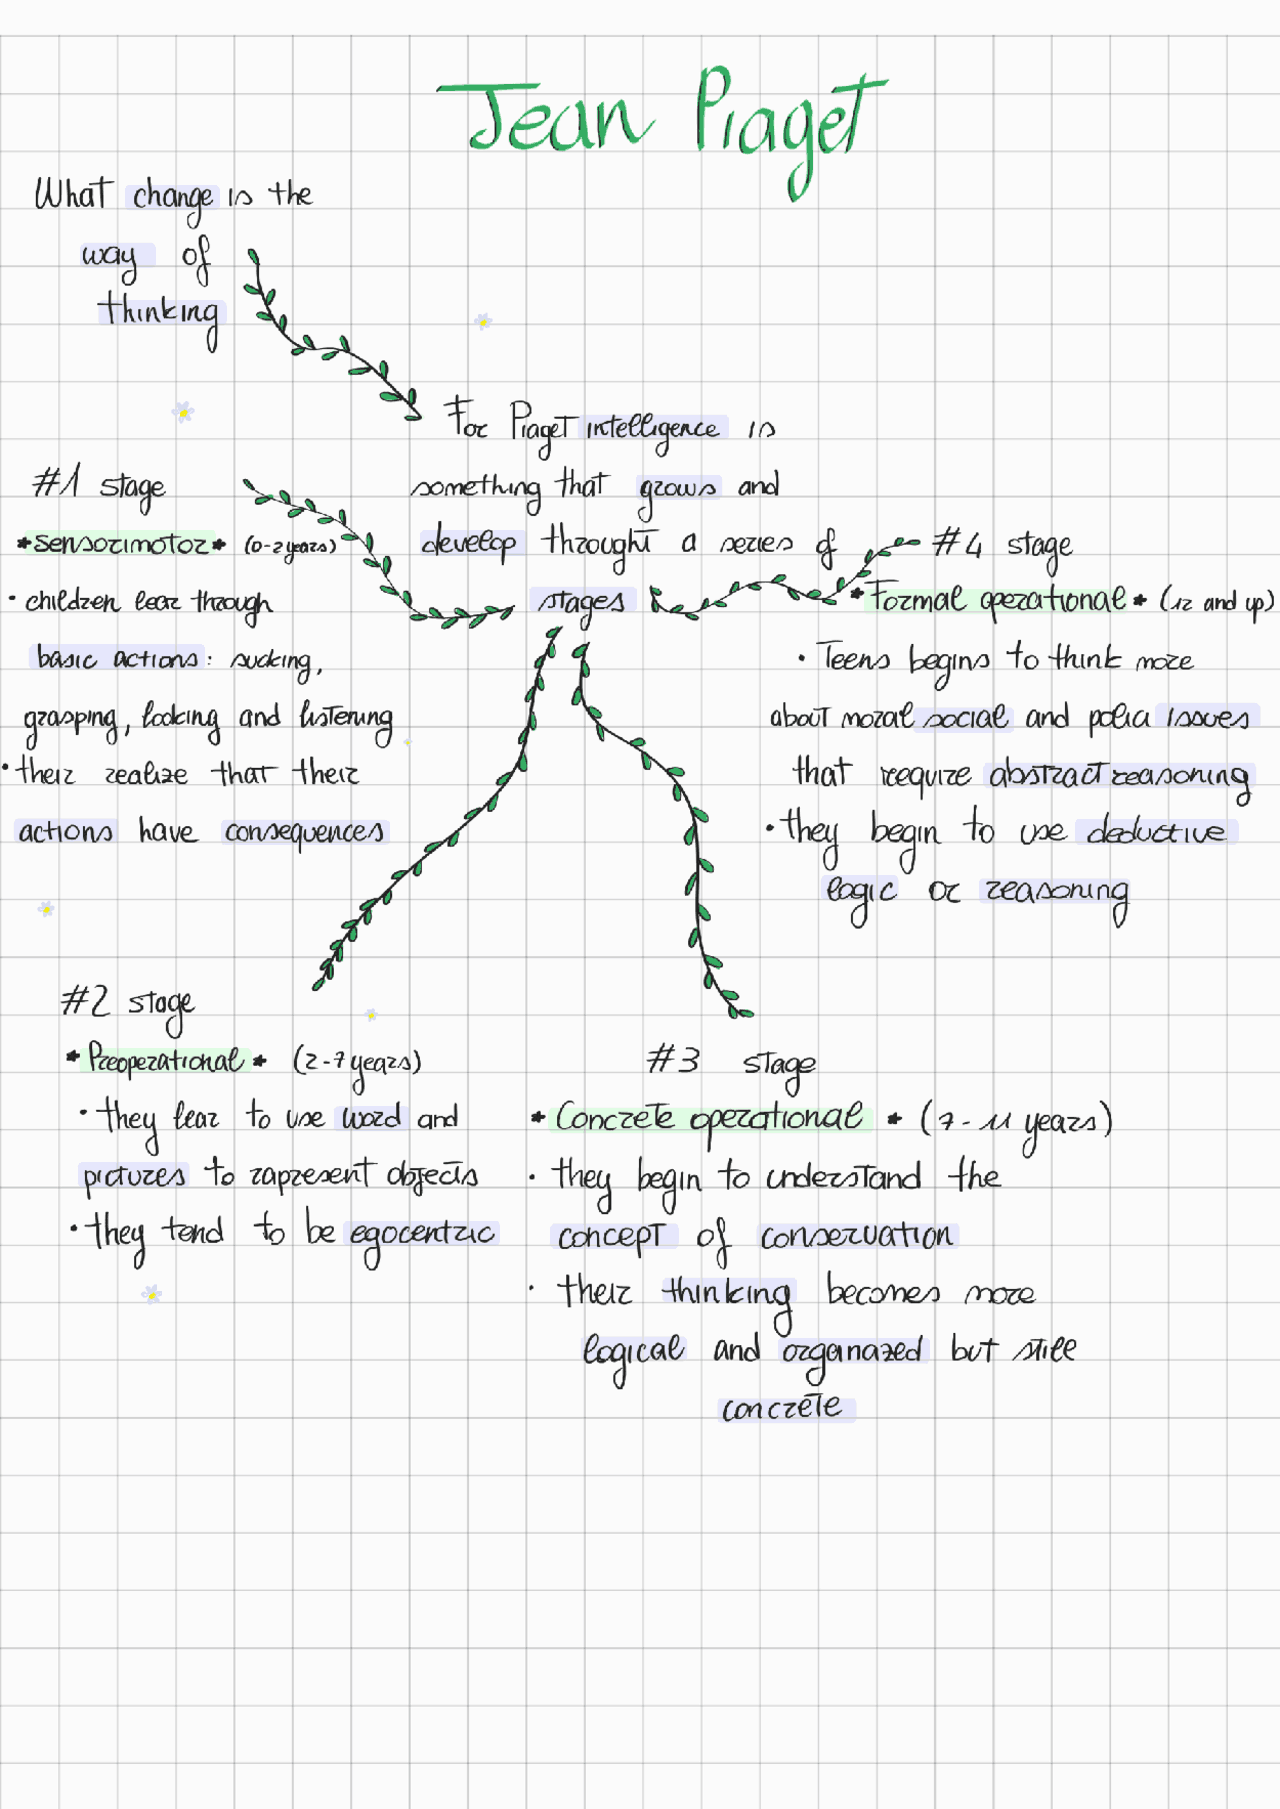 Jean Piaget
What change is the
way of
thinking
For Piaget intelligence is
something that grows and
develop throught a series of
stages
#1 stage
*sensorimotor* (0-2 years)
• children lear through
basic actions: sucking,
grasping, looking and listening
• their realize that their
actions have consequences
#2 stage
* Preoperational * (2-7 years)
• they lear to use word and
pictures to rapresent objects
• they tend to be egocentric
#3 stage
* Concrete operational * (7-11 years)
• they begin to understand the
concept of conservation
• their thinking becomes more
logical and organazed but still
concrete
#4 stage
* Formal operational * (12 and up)
• Teens begins to think more
about moral social and issues
that require abstract reasoning
• they begin to use deductive
logic or reasoning